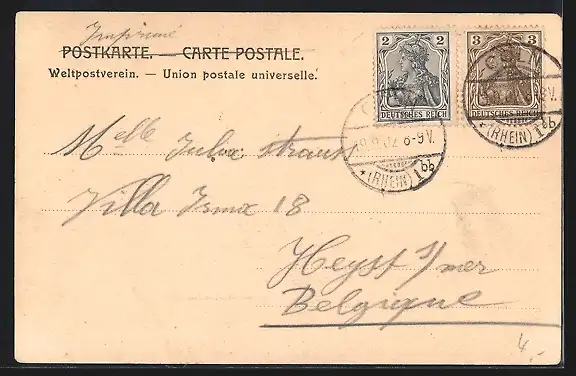 Imprimé
POSTKARTE. — CARTE POSTALE.
Weltpostverein. — Union postale universelle.
2
DEUTSCHES REICH
3
DEUTSCHES REICH
CÖLN
8-9V.
*(RHEIN) 1 bb
CÖLN
*(RHEIN) 1 bb
Melle Strauss
Villa Irma 18
Heyst s/mer
Belgique
4,-